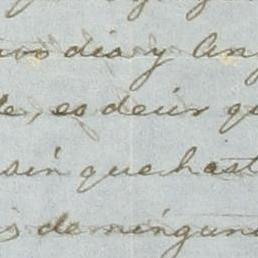 dia y An
de, es decir q
sin que hast
s de ningun